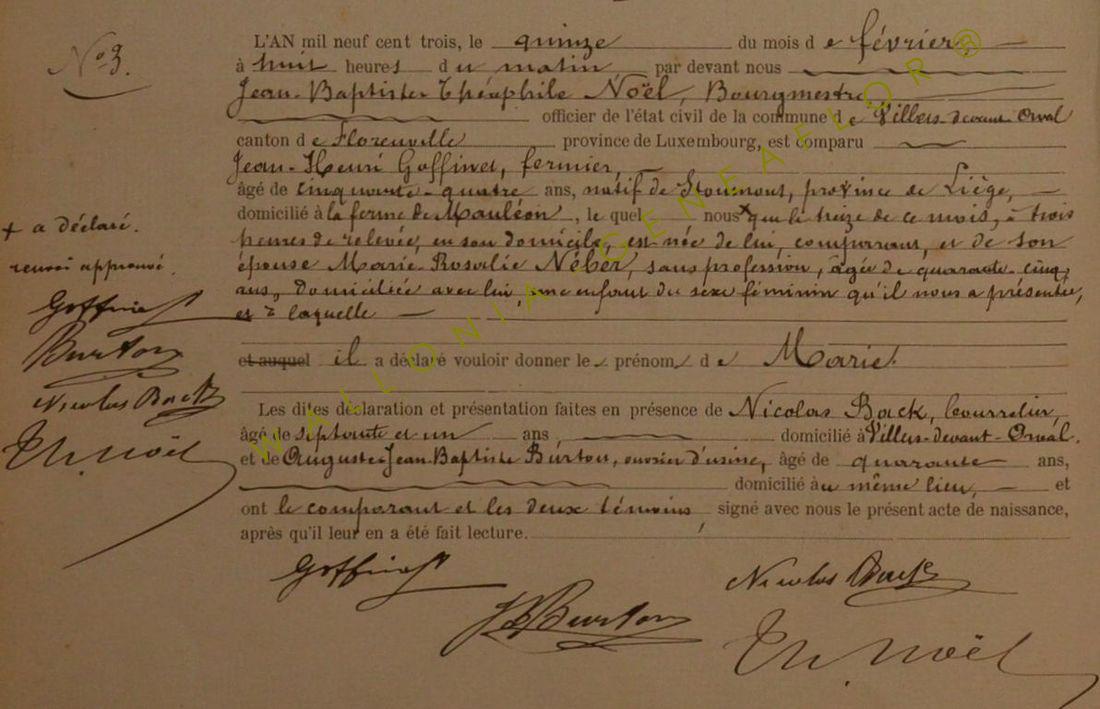 N° 3.
L'AN mil neuf cent trois, le quinze du mois de février,
à huit heures du matin par devant nous
Jean-Baptiste Théophile Noël, Bourgmestre
officier de l'état civil de la commune de Villers-devant-Orval
canton de Florenville province de Luxembourg, est comparu
Jean-Henri Goffinet, fermier,
âgé de cinquante-quatre ans, natif de Stoumont, province de Liège,
domicilié à la ferme de Mauléon, le quel nous + que le treize de ce mois, à trois
heures de relevée, en son domicile, est née de lui, comparant, et de son
épouse Marie Rosalie Néber, sans profession, âgée de quarante-cinq
ans, domiciliée avec lui une enfant du sexe féminin qu'il nous a présentée,
et à laquelle
et auquel il a déclaré vouloir donner le prénom de Marie.
Les dites déclaration et présentation faites en présence de Nicolas Back, bourrelier,
âgé de septante et un ans, domicilié à Villers-devant-Orval.
et de Auguste Jean-Baptiste Burton, ouvrier d'usine, âgé de quarante ans,
domicilié au même lieu, et
ont le comparant et les deux témoins, signé avec nous le présent acte de naissance,
après qu'il leur en a été fait lecture.
+ a déclaré.
renvoi approuvé.
Goffinet
Burton
Nicolas Back
Th. Noël
Goffinet
Nicolas Back
JB Burton
Th. Noël
WALLONIA GENEAFLOR®